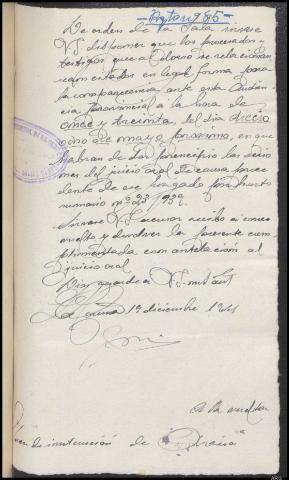 De orden de la Sala sirvase
V.I. disponer que los procesados y
testigos que al dorso se relacionan
sean citados en legal forma para
la comparecencia ante esta Audien
cia provincial a la hora de
once y treinta, del día dieci
ocho de mayo próximo, en que
habran de dar principio las sesio
nes del juicio oral de causa proce
dente de ese juzgado por hurto
numario nº 223 1939.
Sirvase V.I. acusar recibo a correo
vuelto y devolver la presente cum
plimentada con antelación al
juicio oral
Dios guarde a V.I. 
19 diciembre 1941
A la vuelta
de instrucción de